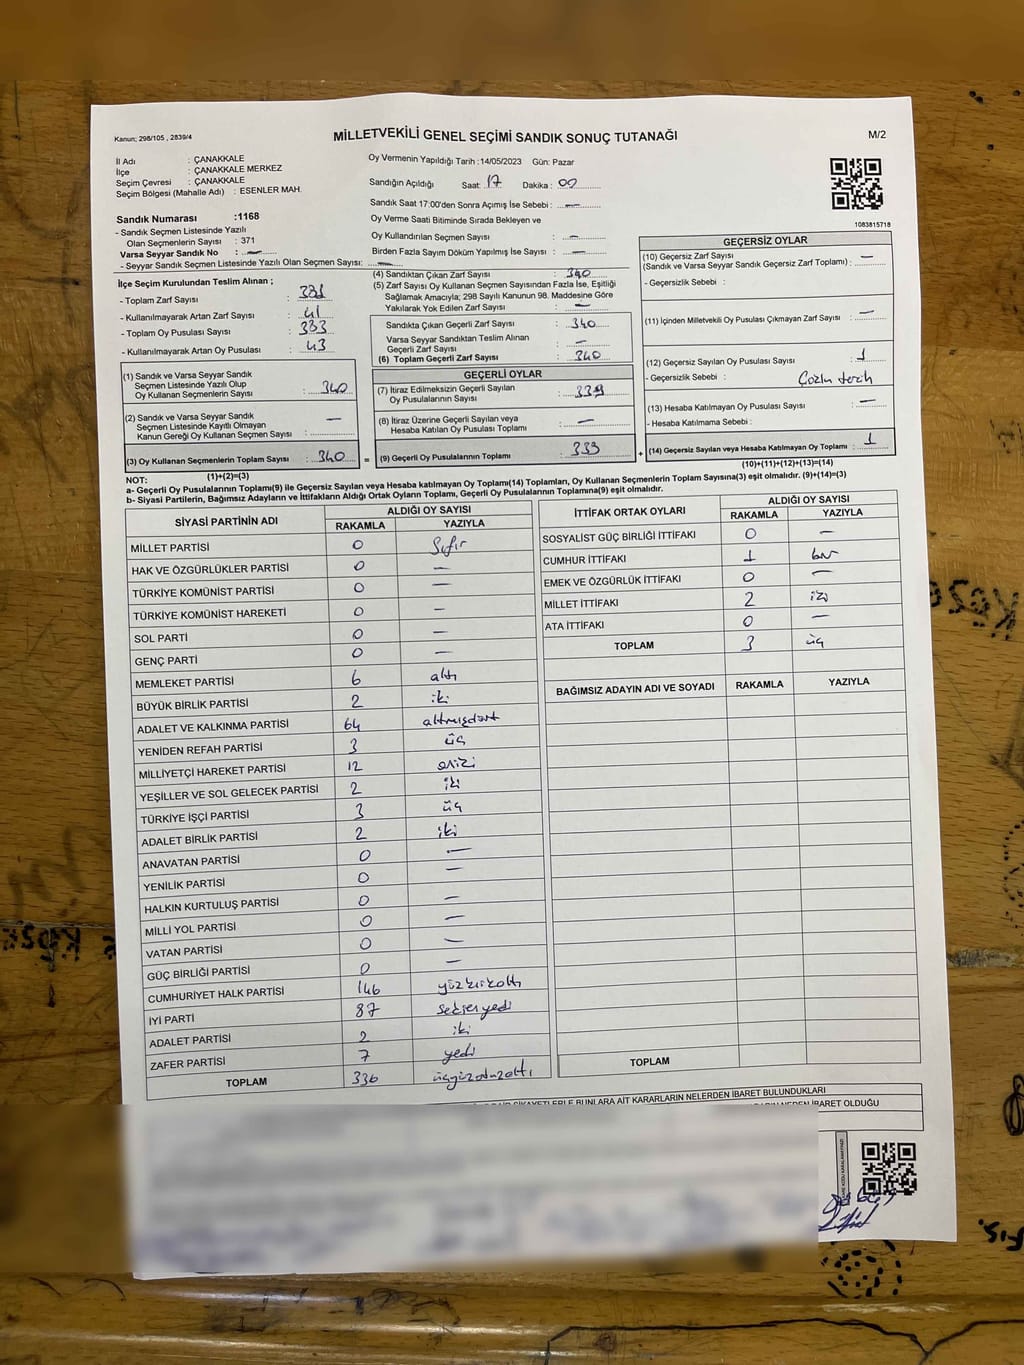 Kanun; 298/105 , 2839/4
MİLLETVEKİLİ GENEL SEÇİMİ SANDIK SONUÇ TUTANAĞI
M/2
İl Adı : ÇANAKKALE
İlçe : ÇANAKKALE MERKEZ
Seçim Çevresi : ÇANAKKALE
Seçim Bölgesi (Mahalle Adı) : ESENLER MAH.
Oy Vermenin Yapıldığı Tarih : 14/05/2023 Gün: Pazar
Sandığın Açıldığı Saat: 17 Dakika : 00
Sandık Saat 17:00'den Sonra Açımış İse Sebebi : —
Oy Verme Saati Bitiminde Sırada Bekleyen ve
Oy Kullandırılan Seçmen Sayısı : —
Birden Fazla Sayım Döküm Yapılmış İse Sayısı : —
1083815718
Sandık Numarası :1168
- Sandık Seçmen Listesinde Yazılı
Olan Seçmenlerin Sayısı : 371
Varsa Seyyar Sandık No : —
- Seyyar Sandık Seçmen Listesinde Yazılı Olan Seçmen Sayısı: —
İlçe Seçim Kurulundan Teslim Alınan ;
- Toplam Zarf Sayısı : 381
- Kullanılmayarak Artan Zarf Sayısı : 41
- Toplam Oy Pusulası Sayısı : 383
- Kullanılmayarak Artan Oy Pusulası : 43
(1) Sandık ve Varsa Seyyar Sandık
Seçmen Listesinde Yazılı Olup
Oy Kullanan Seçmenlerin Sayısı : 340
(2) Sandık ve Varsa Seyyar Sandık
Seçmen Listesinde Kayıtlı Olmayan
Kanun Gereği Oy Kullanan Seçmen Sayısı : —
(3) Oy Kullanan Seçmenlerin Toplam Sayısı : 340
(1)+(2)=(3)
(4) Sandıktan Çıkan Zarf Sayısı : 340
(5) Zarf Sayısı Oy Kullanan Seçmen Sayısından Fazla İse, Eşitliği
Sağlamak Amacıyla; 298 Sayılı Kanunun 98. Maddesine Göre
Yakılarak Yok Edilen Zarf Sayısı : —
Sandıkta Çıkan Geçerli Zarf Sayısı : 340
Varsa Seyyar Sandıktan Teslim Alınan
Geçerli Zarf Sayısı : —
(6) Toplam Geçerli Zarf Sayısı : 340
GEÇERLİ OYLAR
(7) İtiraz Edilmeksizin Geçerli Sayılan
Oy Pusulalarının Sayısı : 339
(8) İtiraz Üzerine Geçerli Sayılan veya
Hesaba Katılan Oy Pusulası Toplamı : —
= (9) Geçerli Oy Pusulalarının Toplamı : 339
GEÇERSİZ OYLAR
(10) Geçersiz Zarf Sayısı
(Sandık ve Varsa Seyyar Sandık Geçersiz Zarf Toplamı) : —
- Geçersizlik Sebebi :
(11) İçinden Milletvekili Oy Pusulası Çıkmayan Zarf Sayısı : —
(12) Geçersiz Sayılan Oy Pusulası Sayısı : 1
- Geçersizlik Sebebi : Çoklu tercih
(13) Hesaba Katılmayan Oy Pusulası Sayısı : —
- Hesaba Katılmama Sebebi :
+ (14) Geçersiz Sayılan veya Hesaba Katılmayan Oy Toplamı : 1
(10)+(11)+(12)+(13)=(14)
NOT:
a- Geçerli Oy Pusulalarının Toplamı(9) ile Geçersiz Sayılan veya Hesaba katılmayan Oy Toplamı(14) Toplamları, Oy Kullanan Seçmenlerin Toplam Sayısına(3) eşit olmalıdır. (9)+(14)=(3)
b- Siyasi Partilerin, Bağımsız Adayların ve İttifakların Aldığı Ortak Oyların Toplamı, Geçerli Oy Pusulalarının Toplamına(9) eşit olmalıdır.
SİYASİ PARTİNİN ADI ALDIĞI OY SAYISI
RAKAMLA YAZIYLA
MİLLET PARTİSİ 0 Sıfır
HAK VE ÖZGÜRLÜKLER PARTİSİ 0 —
TÜRKİYE KOMÜNİST PARTİSİ 0 —
TÜRKİYE KOMÜNİST HAREKETİ 0 —
SOL PARTİ 0 —
GENÇ PARTİ 0 —
MEMLEKET PARTİSİ 6 altı
BÜYÜK BİRLİK PARTİSİ 2 iki
ADALET VE KALKINMA PARTİSİ 64 altmışdört
YENİDEN REFAH PARTİSİ 3 üç
MİLLİYETÇİ HAREKET PARTİSİ 12 oniki
YEŞİLLER VE SOL GELECEK PARTİSİ 2 iki
TÜRKİYE İŞÇİ PARTİSİ 3 üç
ADALET BİRLİK PARTİSİ 2 iki
ANAVATAN PARTİSİ 0 —
YENİLİK PARTİSİ 0 —
HALKIN KURTULUŞ PARTİSİ 0 —
MİLLİ YOL PARTİSİ 0 —
VATAN PARTİSİ 0 —
GÜÇ BİRLİĞİ PARTİSİ 0 —
CUMHURİYET HALK PARTİSİ 146 yüzkırkaltı
İYİ PARTİ 87 seksenyedi
ADALET PARTİSİ 2 iki
ZAFER PARTİSİ 7 yedi
TOPLAM 336 üçyüzotuzaltı
İTTİFAK ORTAK OYLARI ALDIĞI OY SAYISI
RAKAMLA YAZIYLA
SOSYALİST GÜÇ BİRLİĞİ İTTİFAKI 0 —
CUMHUR İTTİFAKI 1 bir
EMEK VE ÖZGÜRLÜK İTTİFAKI 0 —
MİLLET İTTİFAKI 2 iki
ATA İTTİFAKI 0 —
TOPLAM 3 üç
BAĞIMSIZ ADAYIN ADI VE SOYADI RAKAMLA YAZIYLA
TOPLAM
ŞİKAYETLERLE BUNLARA AİT KARARLARIN NELERDEN İBARET BULUNDUKLARI
İBARET OLDUĞU